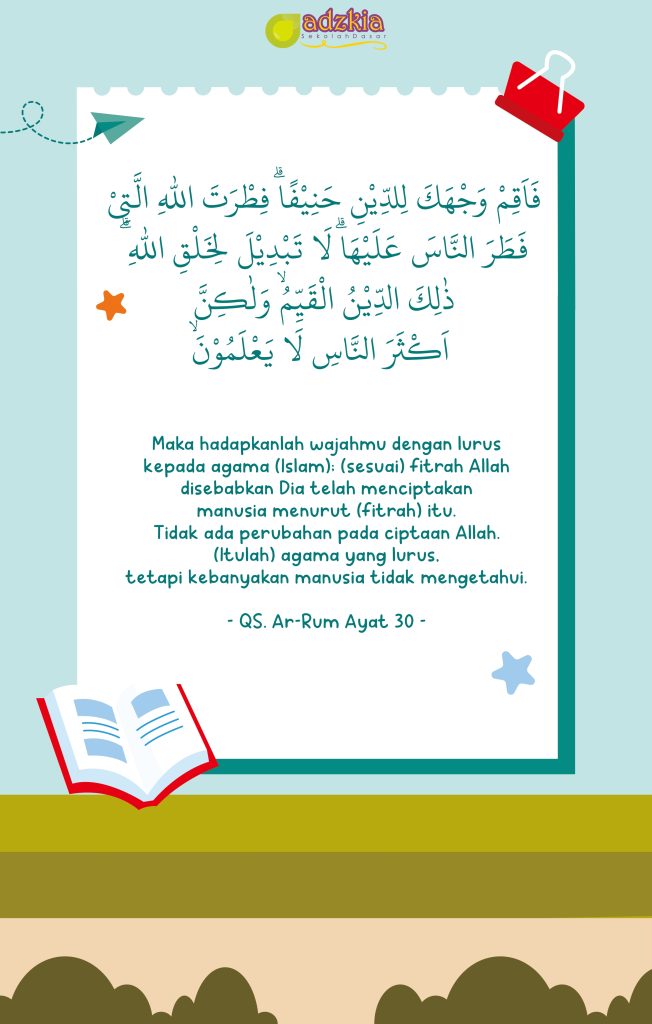 adzkia
SekolahDasar
فَاَقِمْ وَجْهَكَ لِلدِّيْنِ حَنِيْفًاۗ فِطْرَتَ اللّٰهِ الَّتِيْ
فَطَرَ النَّاسَ عَلَيْهَاۗ لَا تَبْدِيْلَ لِخَلْقِ اللّٰهِ ۗ
ذٰلِكَ الدِّيْنُ الْقَيِّمُۙ وَلٰكِنَّ
اَكْثَرَ النَّاسِ لَا يَعْلَمُوْنَۙ
Maka hadapkanlah wajahmu dengan lurus
kepada agama (Islam); (sesuai) fitrah Allah
disebabkan Dia telah menciptakan
manusia menurut (fitrah) itu.
Tidak ada perubahan pada ciptaan Allah.
(Itulah) agama yang lurus,
tetapi kebanyakan manusia tidak mengetahui.
- QS. Ar-Rum Ayat 30 -